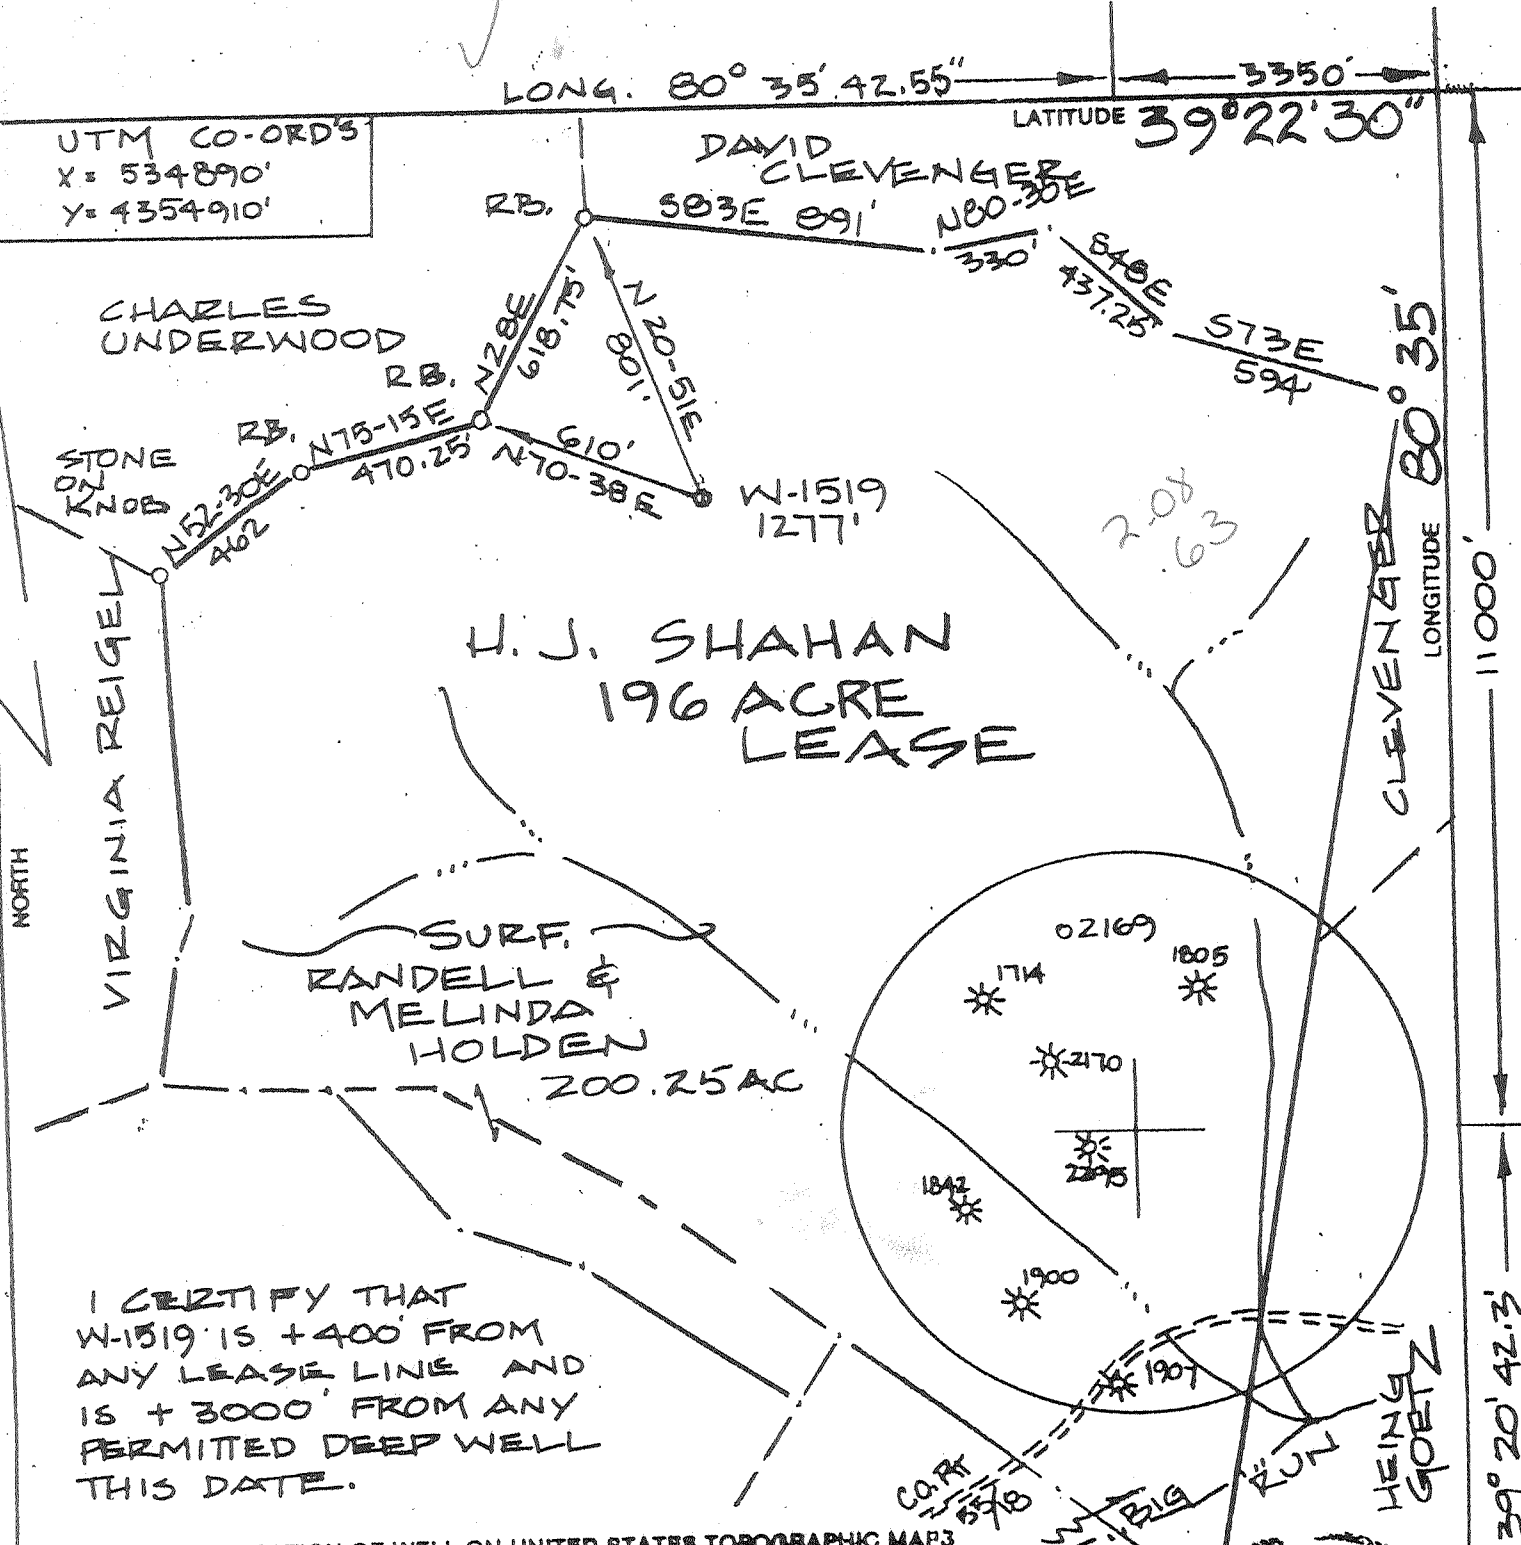 LONG. 80° 35' 42.55"
3350'
LATITUDE 39°22'30"
UTM CO-ORD'S
X= 534890'
Y= 4354910'
DAVID
CLEVENGER
RB.
S83E 891'
N80-30E
330'
S48E
437.25
S73E
594
CHARLES
UNDERWOOD
N28E
618.75'
N20-51E
801'
RB.
RB.
N75-15E
470.25'
610'
N70-38E
STONE
ON
KNOB
N52-30E
462
W-1519
1277'
2.08
.63
LONGITUDE 80° 35'
CLEVENGER
11000'
H. J. SHAHAN
196 ACRE
LEASE
VIRGINIA REIGEL
NORTH
SURF.
RANDELL &
MELINDA
HOLDEN
200.25 AC
02169
1714
1805
2170
2295
1842
1900
1907
I CERTIFY THAT
W-1519 IS +400' FROM
ANY LEASE LINE AND
IS + 3000' FROM ANY
PERMITTED DEEP WELL
THIS DATE.
CO. RT
55/18
BIG RUN
HEING
GOETZ
39° 20' 42.3"
OF WELL ON UNITED STATES TOPOGRAPHIC MAPS